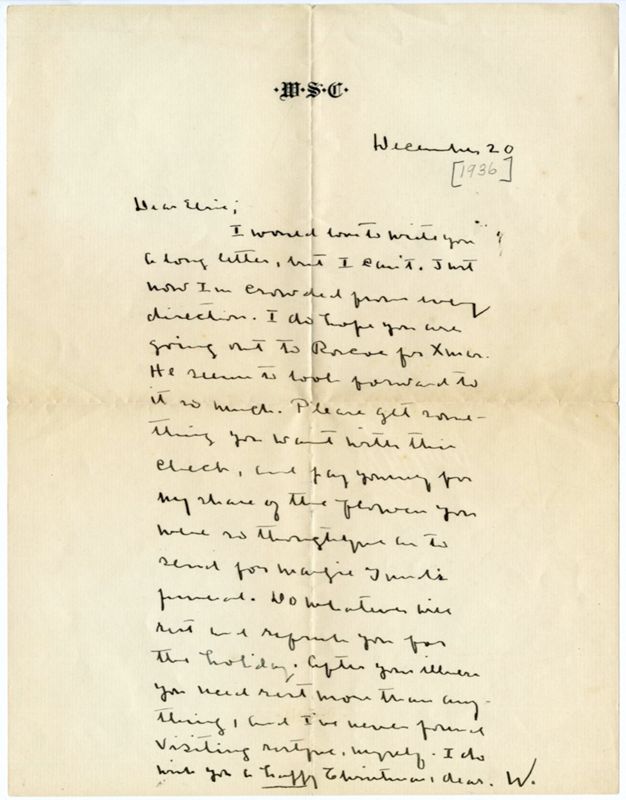 ·W·S·C·
December 20
[1936]
Dear Elsie;
I would love to write you
a long letter, but I can't. Just
now I'm crowded from every
direction. I do hope you are
going out to Roscoe for Xmas.
He seems to look forward to
it so much. Please get some-
thing you want with this
check, and pay yourself for
my share of the flowers you
were so thoughtful as to
send for Margie
funeral. Do whatever will
rest and refresh you for
the holiday. After your illness
you need rest more than any-
thing, and I've never found
visiting restful, myself. I do
wish you a happy Christmas, dear. W.